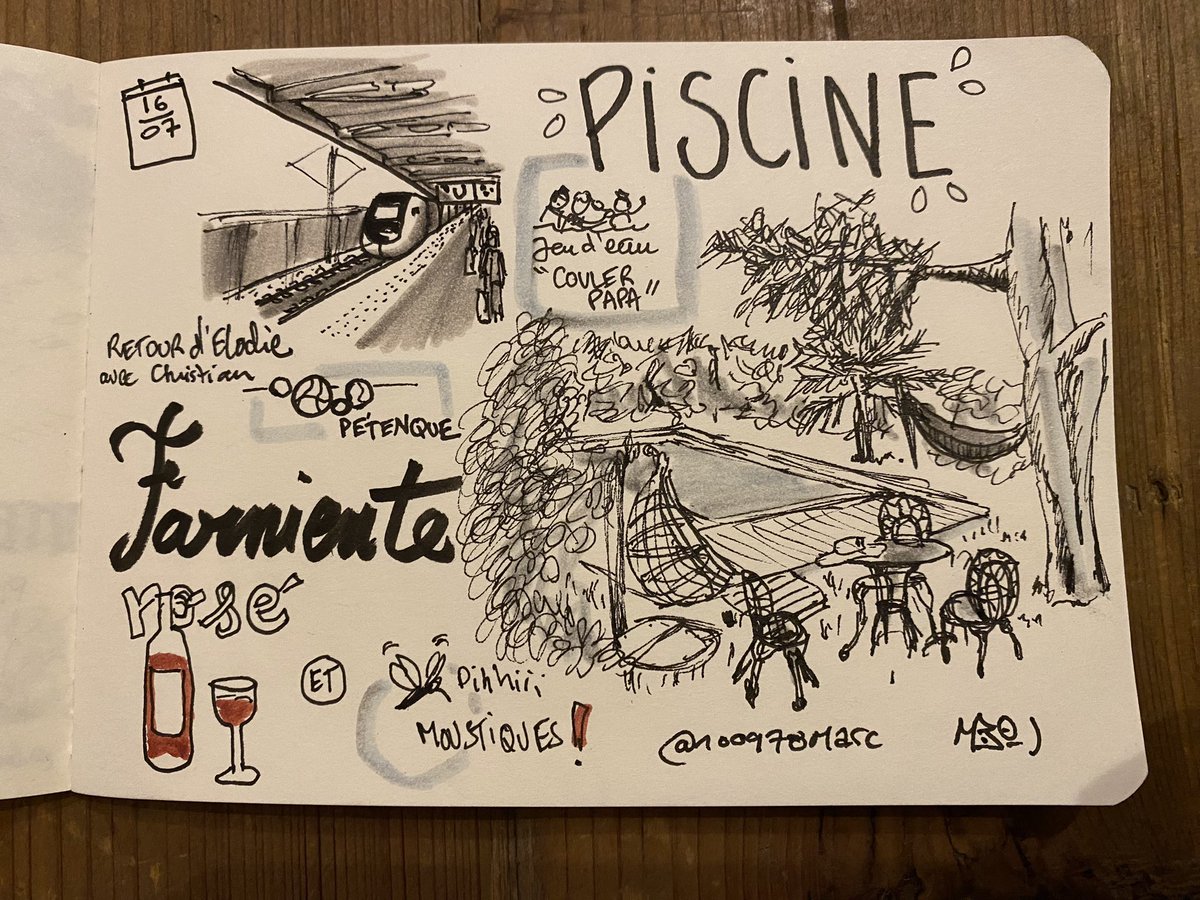 16
07
PISCINE
Jeu d'eau
"COULER
PAPA"
RETOUR d'Elodie
avec Christian
PÉTENQUE
Farniente
rosé
ET
MOUSTIQUES!
@100978Marc